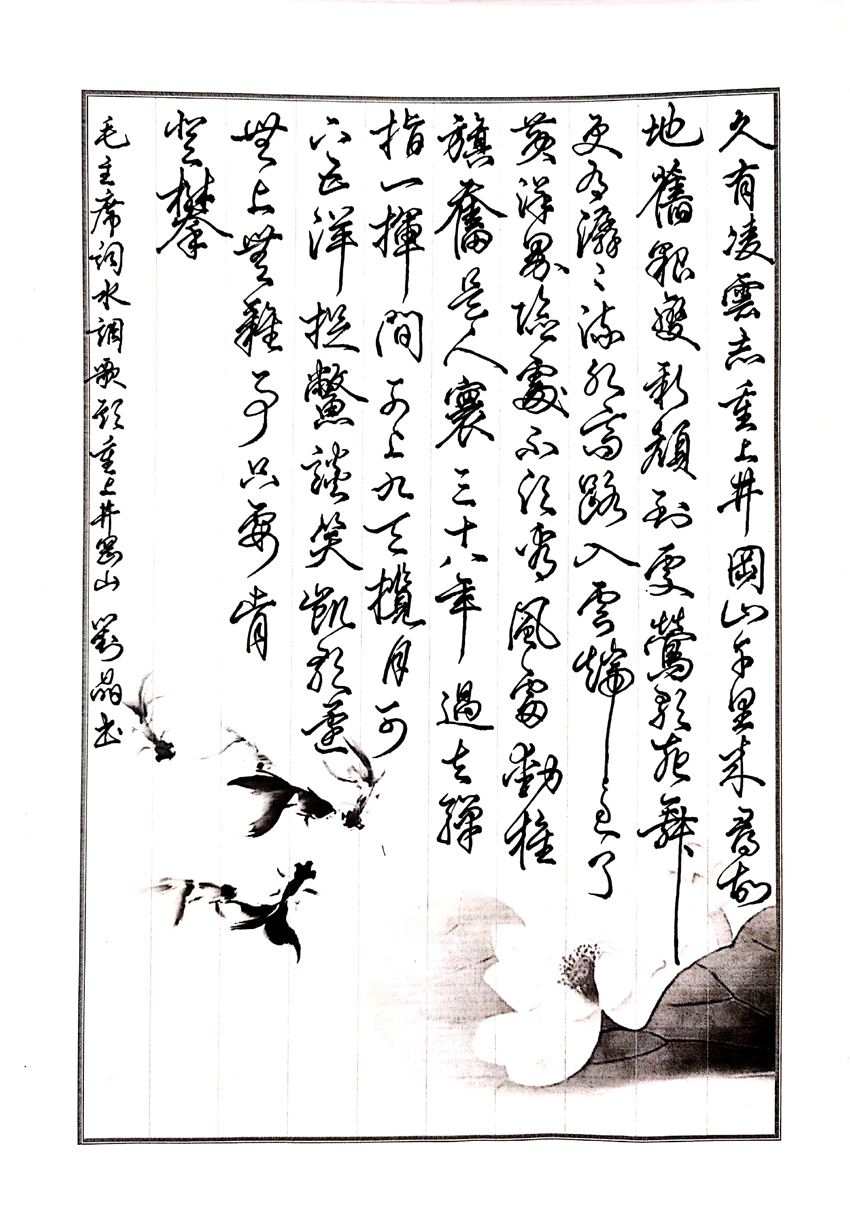 久有凌雲志重上井岡山千里来尋故
地舊貌變新顔到處鶯歌燕舞
更有潺々流水高路入雲端過了
黄洋界險處不須看風雷動旌
旗奮是人寰三十八年過去彈
指一揮間可上九天攬月可
下五洋捉鱉談笑凱歌還
世上無難事只要肯
登攀
毛主席詞水調歌頭重上井岡山 劉晶书